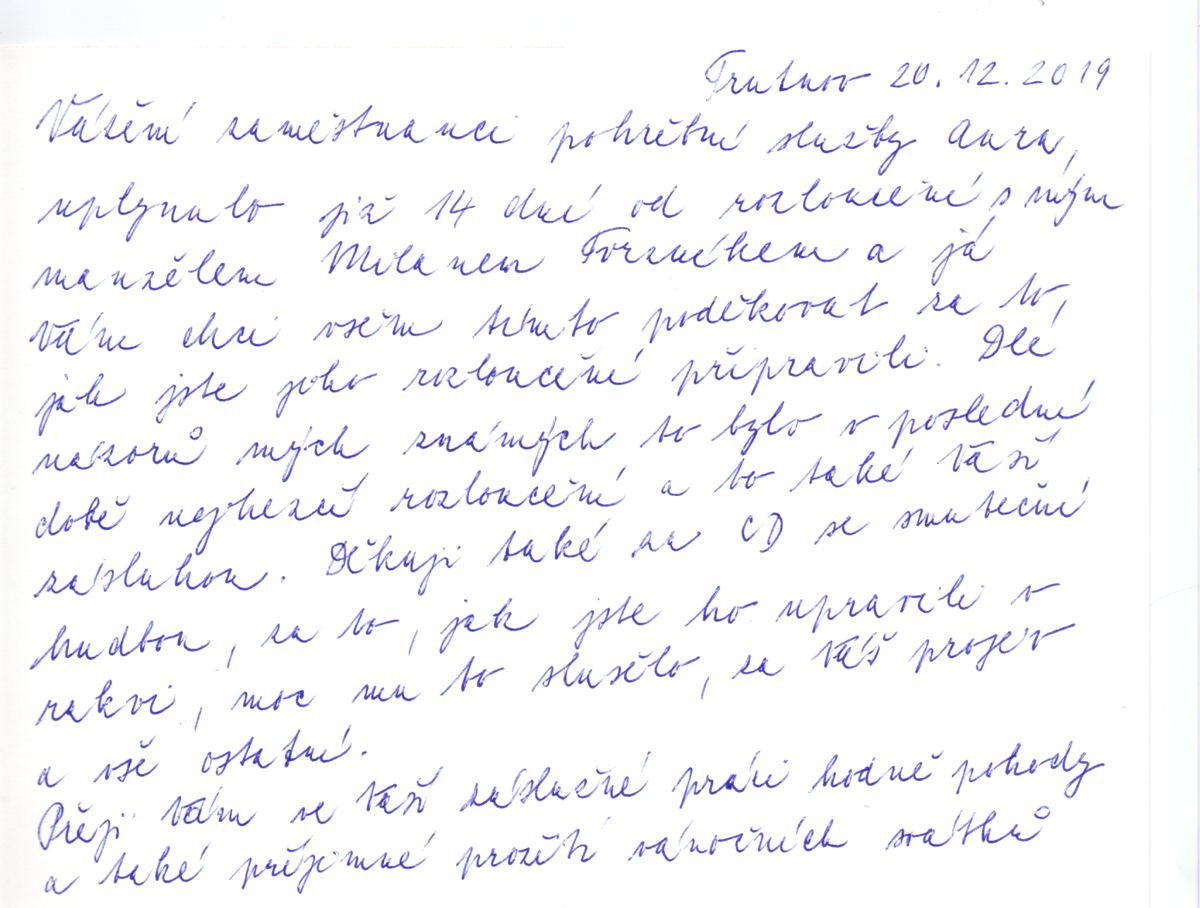 Trutnov 20.12.2019
Vážení zaměstnanci pohřební služby Aura,
uplynulo již 14 dní od rozloučení s mým
manželem Milanem a já
Vám chci všem tímto poděkovat za to,
jak jste jeho rozloučení připravili. Dle
názorů mých známých to bylo v poslední
době nejhezčí rozloučení a to také Vaší
zásluhou. Děkuji také za CD se smuteční
hudbou, za to, jak jste ho upravili v
rakvi, moc mu to slušelo, za Váš projev
a vše ostatní.
Přeji Vám ve Vaší záslužné práci hodně pohody
a také příjemné prožití vánočních svátků